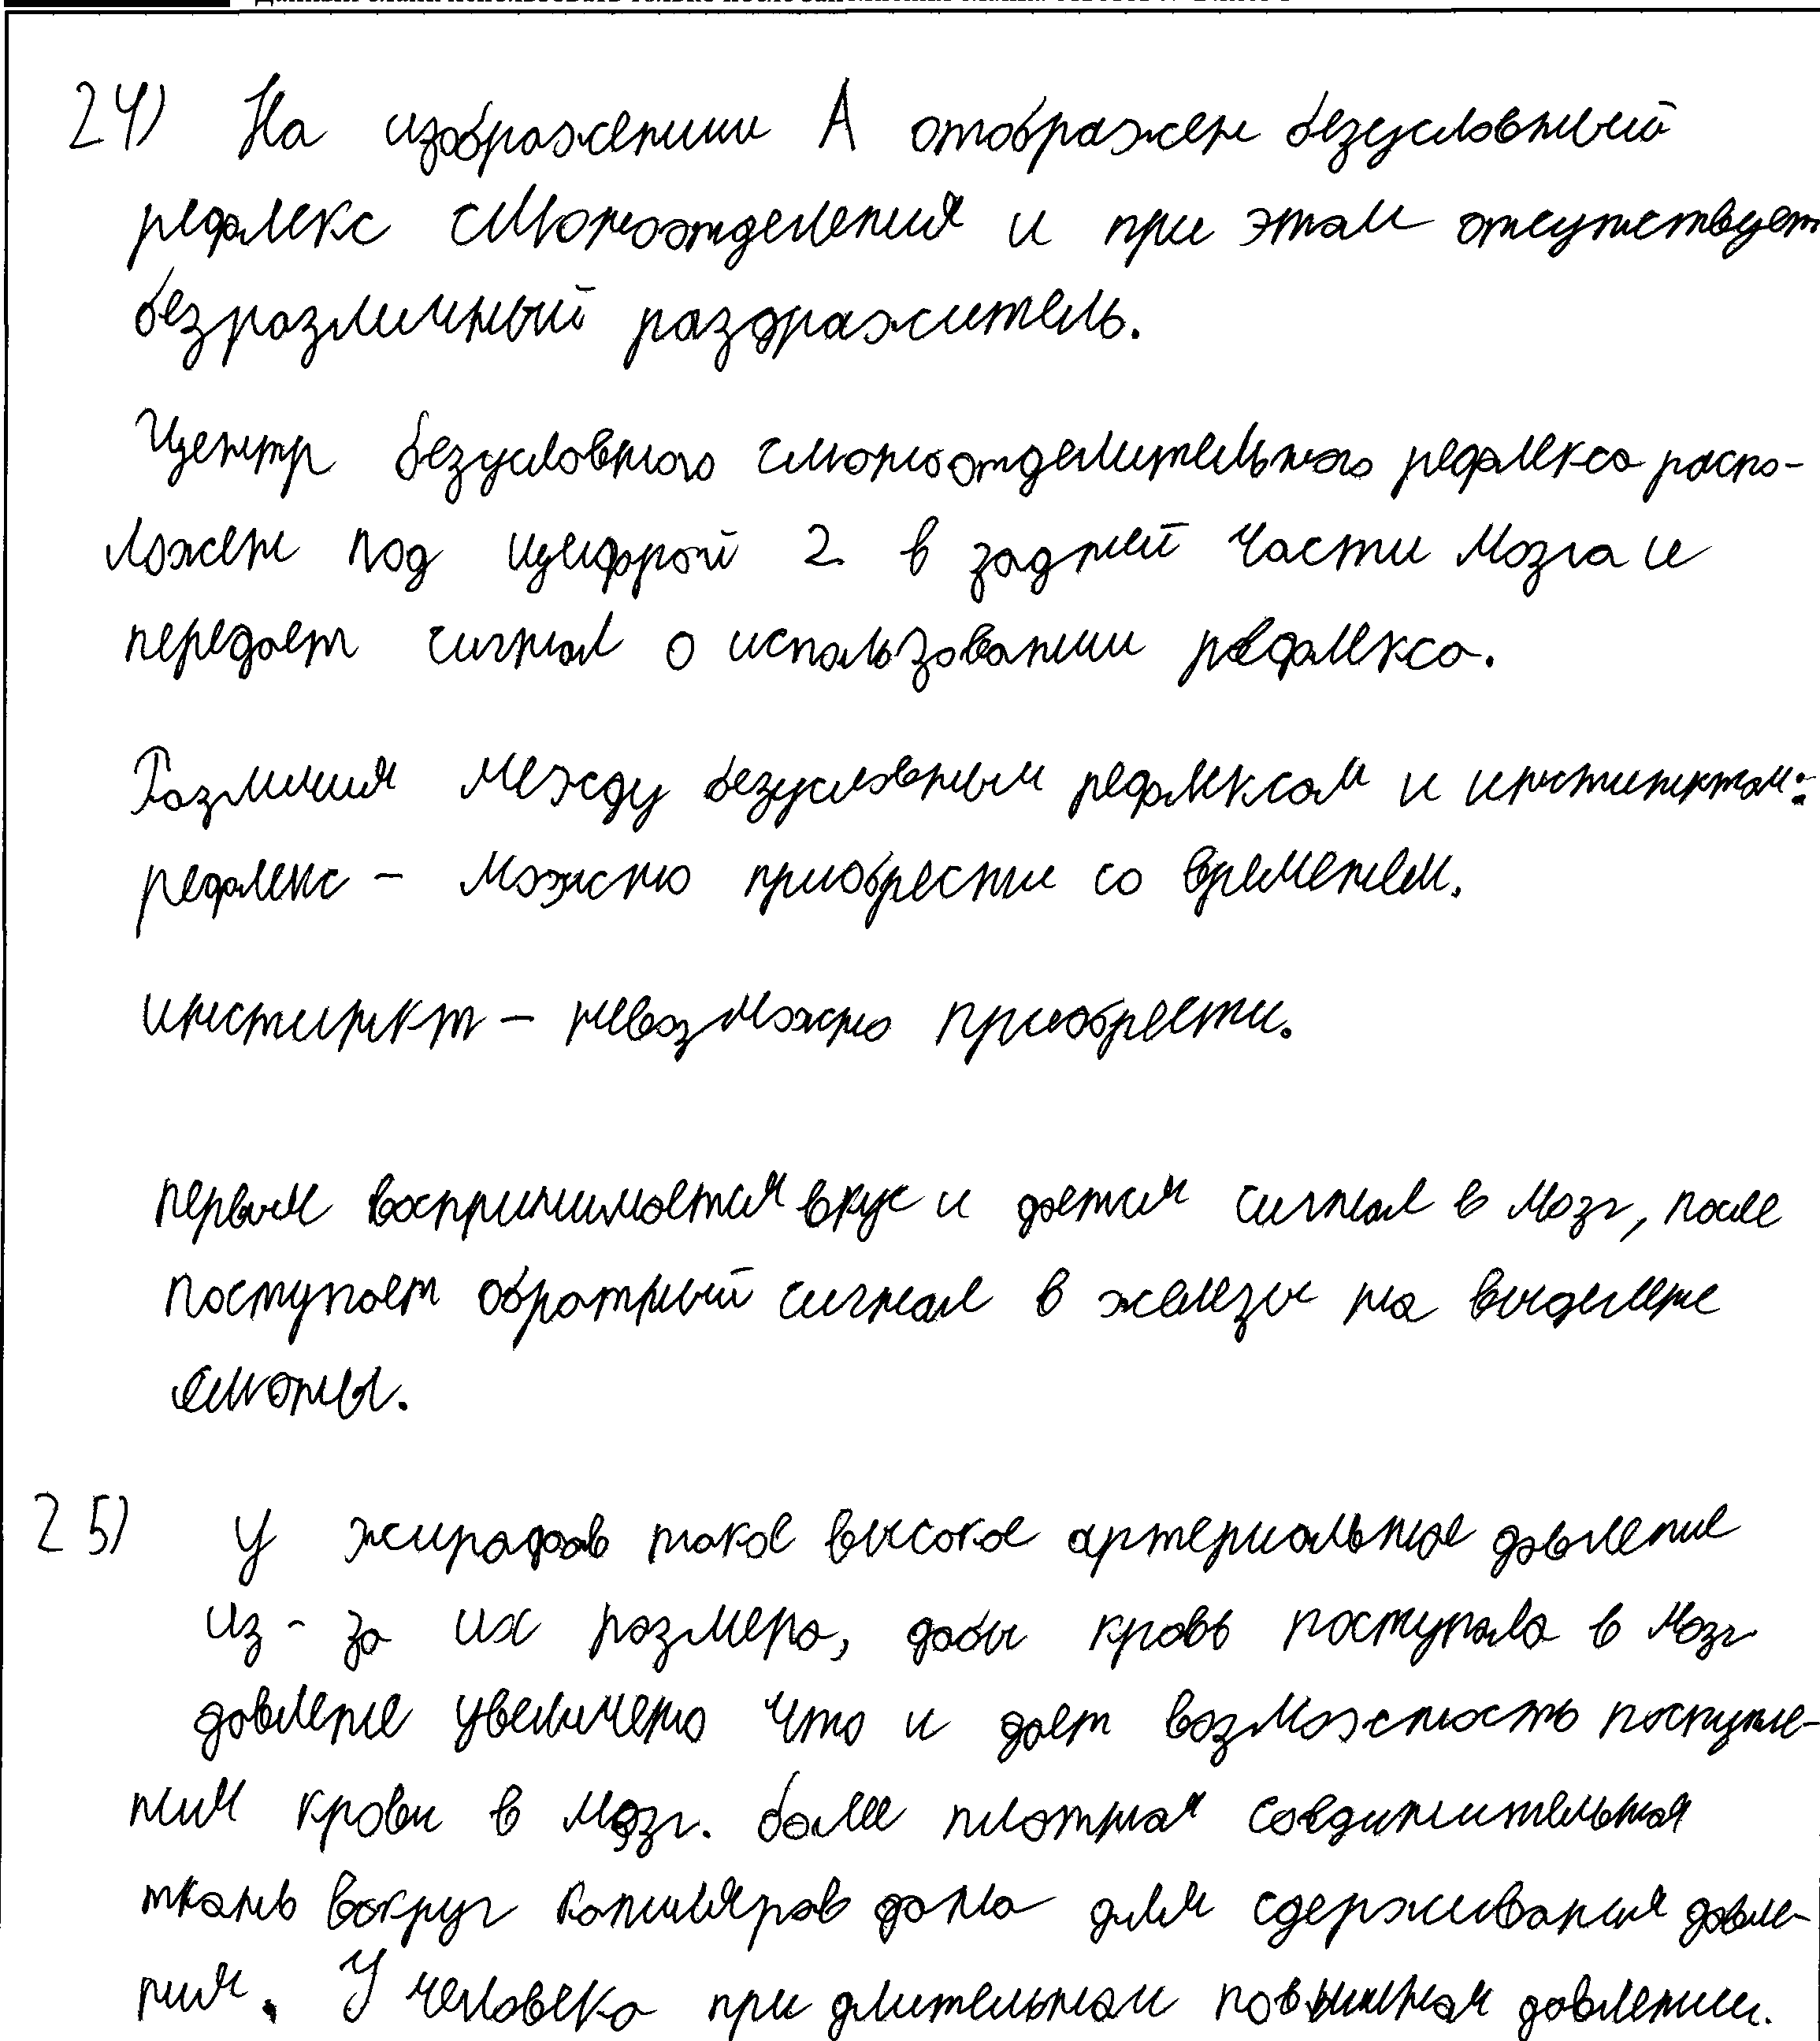 24) На изображении А отображен безусловный
рефлекс слюноотделения и при этом отсутствует
безразличный раздражитель.
Центр безусловного слюноотделительного рефлекса распо-
ложен под цифрой 2 в задней части мозга и
передает сигнал о использовании рефлекса.
Различия между безусловным рефлексом и инстинктом:
рефлекс - можно приобрести со временем.
инстинкт - невозможно приобрести.
первым воспринимается вкус и дается сигнал в мозг, после
поступает обратный сигнал в железы на выделение
слюны.
25) У жирафов такое высокое артериальное давление
из-за их размера, дабы кровь поступала в мозг
давление увеличено что и дает возможность поступле-
ния крови в мозг. более плотная соединительная
ткань вокруг капилляров дана для сдерживания давле-
ния. У человека при длительном повышеном давлении.